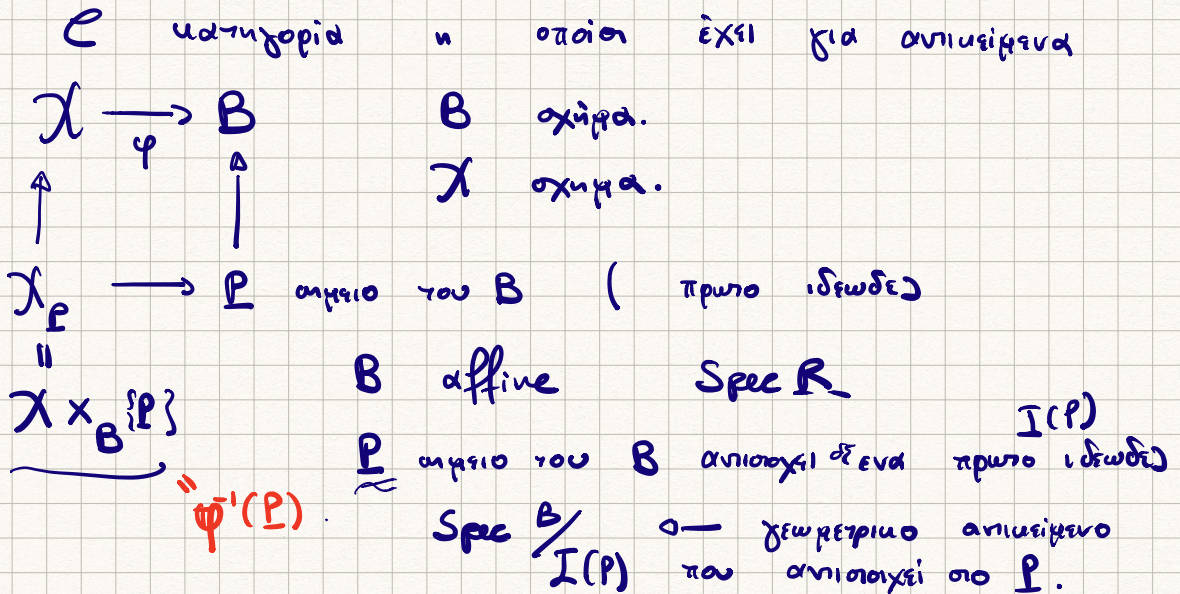 C κατηγορία η οποία έχει για αντικείμενα
X → B B σχήμα.
φ
X σχημα.
X_P → P σημειο του B ( πρωτο ιδεωδες
||
B affine Spec R
X ×_B {P}
I(P)
P σημειο του B αντιστοιχεί σε ενα πρωτο ιδεωδες
" φ⁻¹(P)
Spec B/I(P) ← γεωμετρικο αντικείμενο
που αντιστοιχεί στο P.